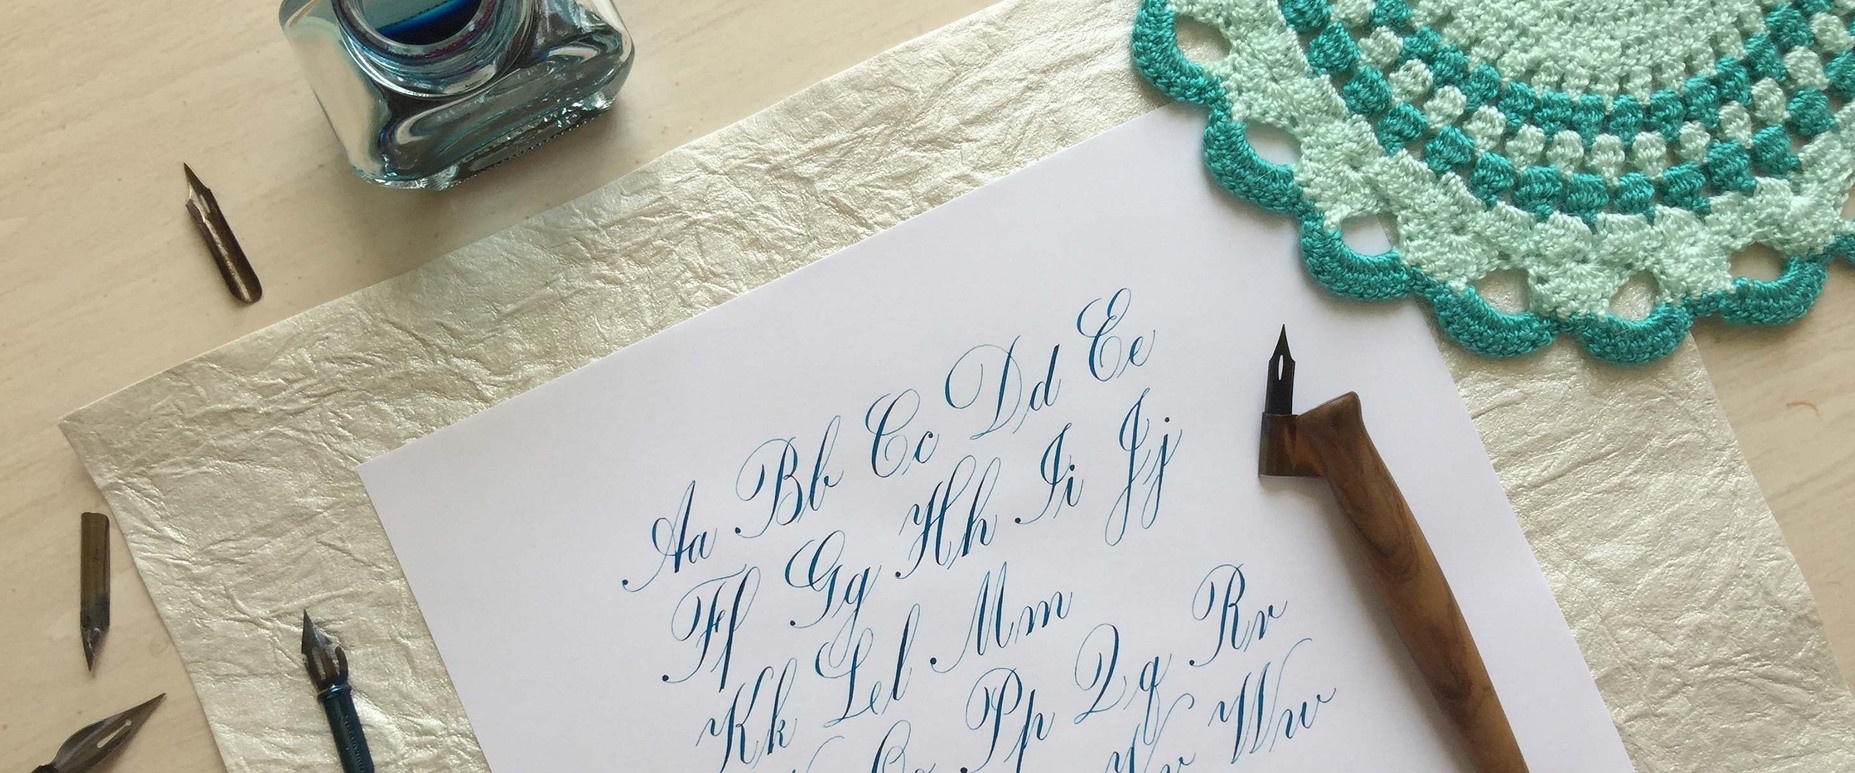 Aa Bb Cc Dd Ee
Ff Gg Hh Ii Jj
Kk Ll Mm
Oo Pp Qq Rr
Vv Ww